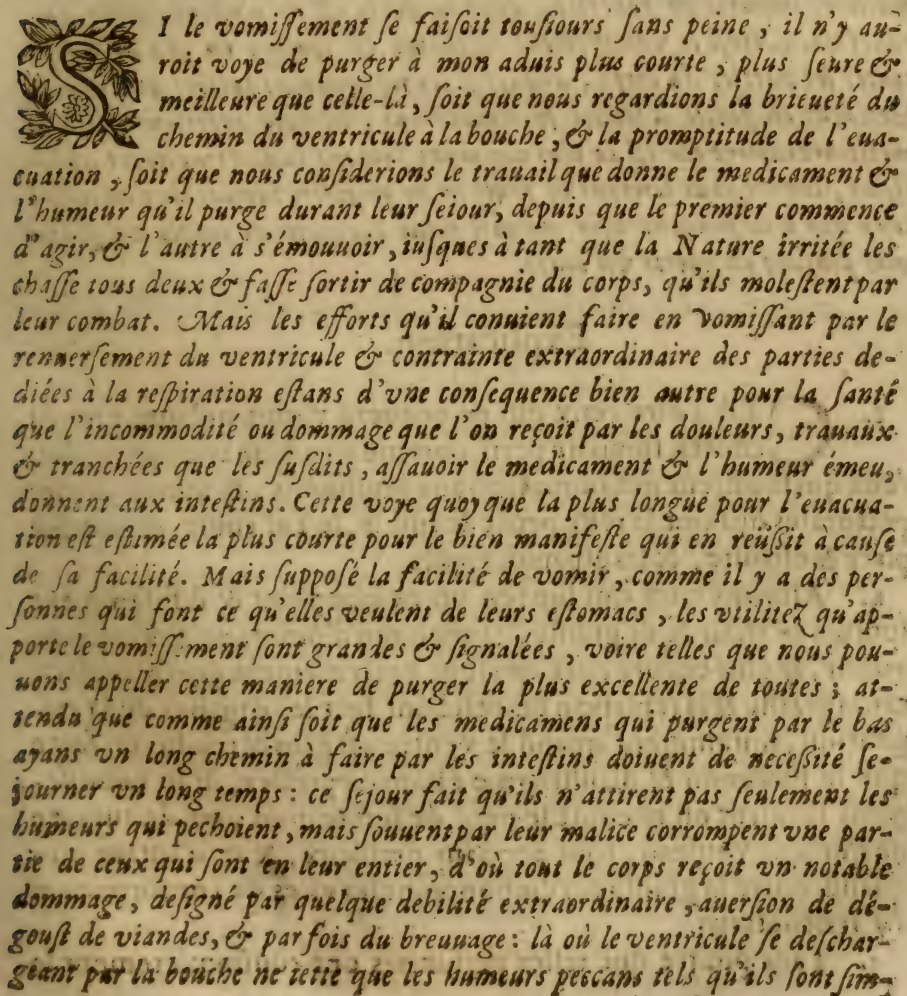 SI le vomiſſement ſe faiſoit touſiours ſans peine, il n'y au-
roit voye de purger à mon aduis plus courte, plus ſeure &
meilleure que celle-là, ſoit que nous regardions la brieueté du
chemin du ventricule à la bouche, & la promptitude de l'eua-
cuation, ſoit que nous conſiderions le trauail que donne le medicament &
l'humeur qu'il purge durant leur ſeiour, depuis que le premier commence
d'agir, & l'autre à s'émouuoir, iuſques à tant que la Nature irritée les
chaſſe tous deux & faſſe ſortir de compagnie du corps, qu'ils moleſtent par
leur combat. Mais les efforts qu'il conuient faire en vomiſſant par le
renuerſement du ventricule & contrainte extraordinaire des parties de-
diées à la reſpiration eſtans d'vne conſequence bien autre pour la ſanté
que l'incommodité ou dommage que l'on reçoit par les douleurs, trauaux
& tranchées que les ſuſdits, aſſauoir le medicament & l'humeur émeu,
donnent aux inteſtins. Cette voye quoyque la plus longue pour l'euacua-
tion eſt eſtimée la plus courte pour le bien manifeſte qui en reüſſit à cauſe
de ſa facilité. Mais ſuppoſé la facilité de vomir, comme il y a des per-
ſonnes qui font ce qu'elles veulent de leurs eſtomacs, les vtilitez qu'ap-
porte le vomiſſement ſont grandes & ſignalées, voire telles que nous pou-
uons appeller cette maniere de purger la plus excellente de toutes; at-
tendu que comme ainſi ſoit que les medicamens qui purgent par le bas
ayans vn long chemin à faire par les inteſtins doiuent de neceſſité ſe-
journer vn long temps: ce ſejour fait qu'ils n'attirent pas ſeulement les
humeurs qui pechoient, mais ſouuent par leur malice corrompent vne par-
tie de ceux qui ſont en leur entier, d'où tout le corps reçoit vn notable
dommage, deſigné par quelque debilité extraordinaire, auerſion de dé-
gouſt de viandes, & par fois du breuuage: là où le ventricule ſe deſchar-
geant par la bouche ne iette que les humeurs peccans tels qu'ils ſont ſim-